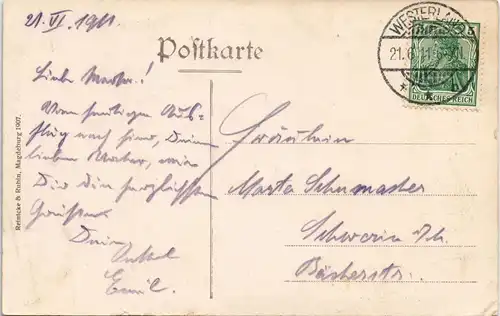 21. VI. 1911.
Postkarte
WESTERLAND
21.6.11
DEUTSCHES REICH
5
Liebe Martha!
Vom heutigen Aus-
flug nach hier, Dein
lieben Mutter, wie
Dir die herzlichsten
Grüsse
Dein
Onkel
Emil.
Fräulein
Marta Schumacher
Schwerin i/M.
Bäckerstr.
Reinicke & Rubin, Magdeburg 1907.